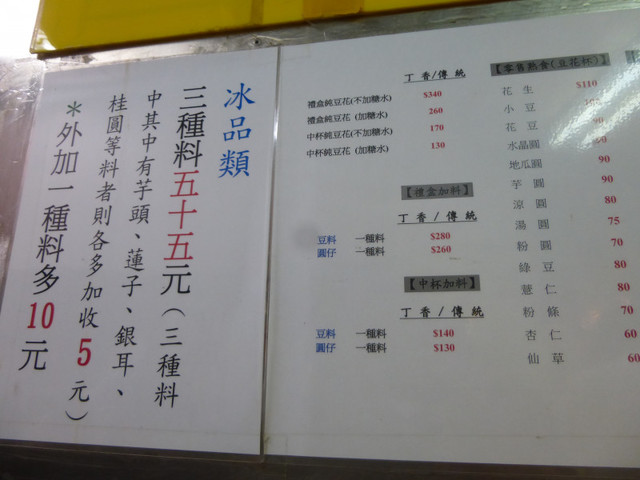 冰品類
三種料五十五元(三種料
中其中有芋頭、蓮子、銀耳、
桂圓等料者則各多加收5元)
*外加一種料多10元
丁香/傳統
禮盒純豆花(不加糖水) $340
禮盒純豆花(加糖水) 260
中杯純豆花(不加糖水) 170
中杯純豆花(加糖水) 130
【禮盒加料】
丁香/傳統
豆料 一種料 $280
圓仔 一種料 $260
【中杯加料】
丁香/傳統
豆料 一種料 $140
圓仔 一種料 $130
【零售熟食(豆花杯)】
花生 $110
小豆
花豆 90
水晶圓 90
地瓜圓 90
芋圓 90
涼圓 80
湯圓 75
粉圓 70
綠豆 80
薏仁 80
粉條 70
杏仁 60
仙草 60